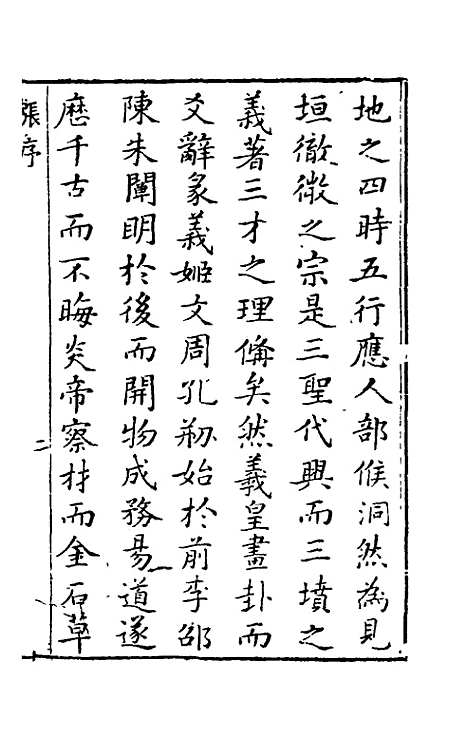 地之四時五行應人部候洞然為見
垣徹微之宗是三聖代興而三墳之
義著三才之理備矣然義皇畫卦而
爻辭彖義姬文周孔剏始於前李邵
陳朱闡明於後而開物成務易道遂
歷千古而不晦炎帝察材而金石草
張序
二